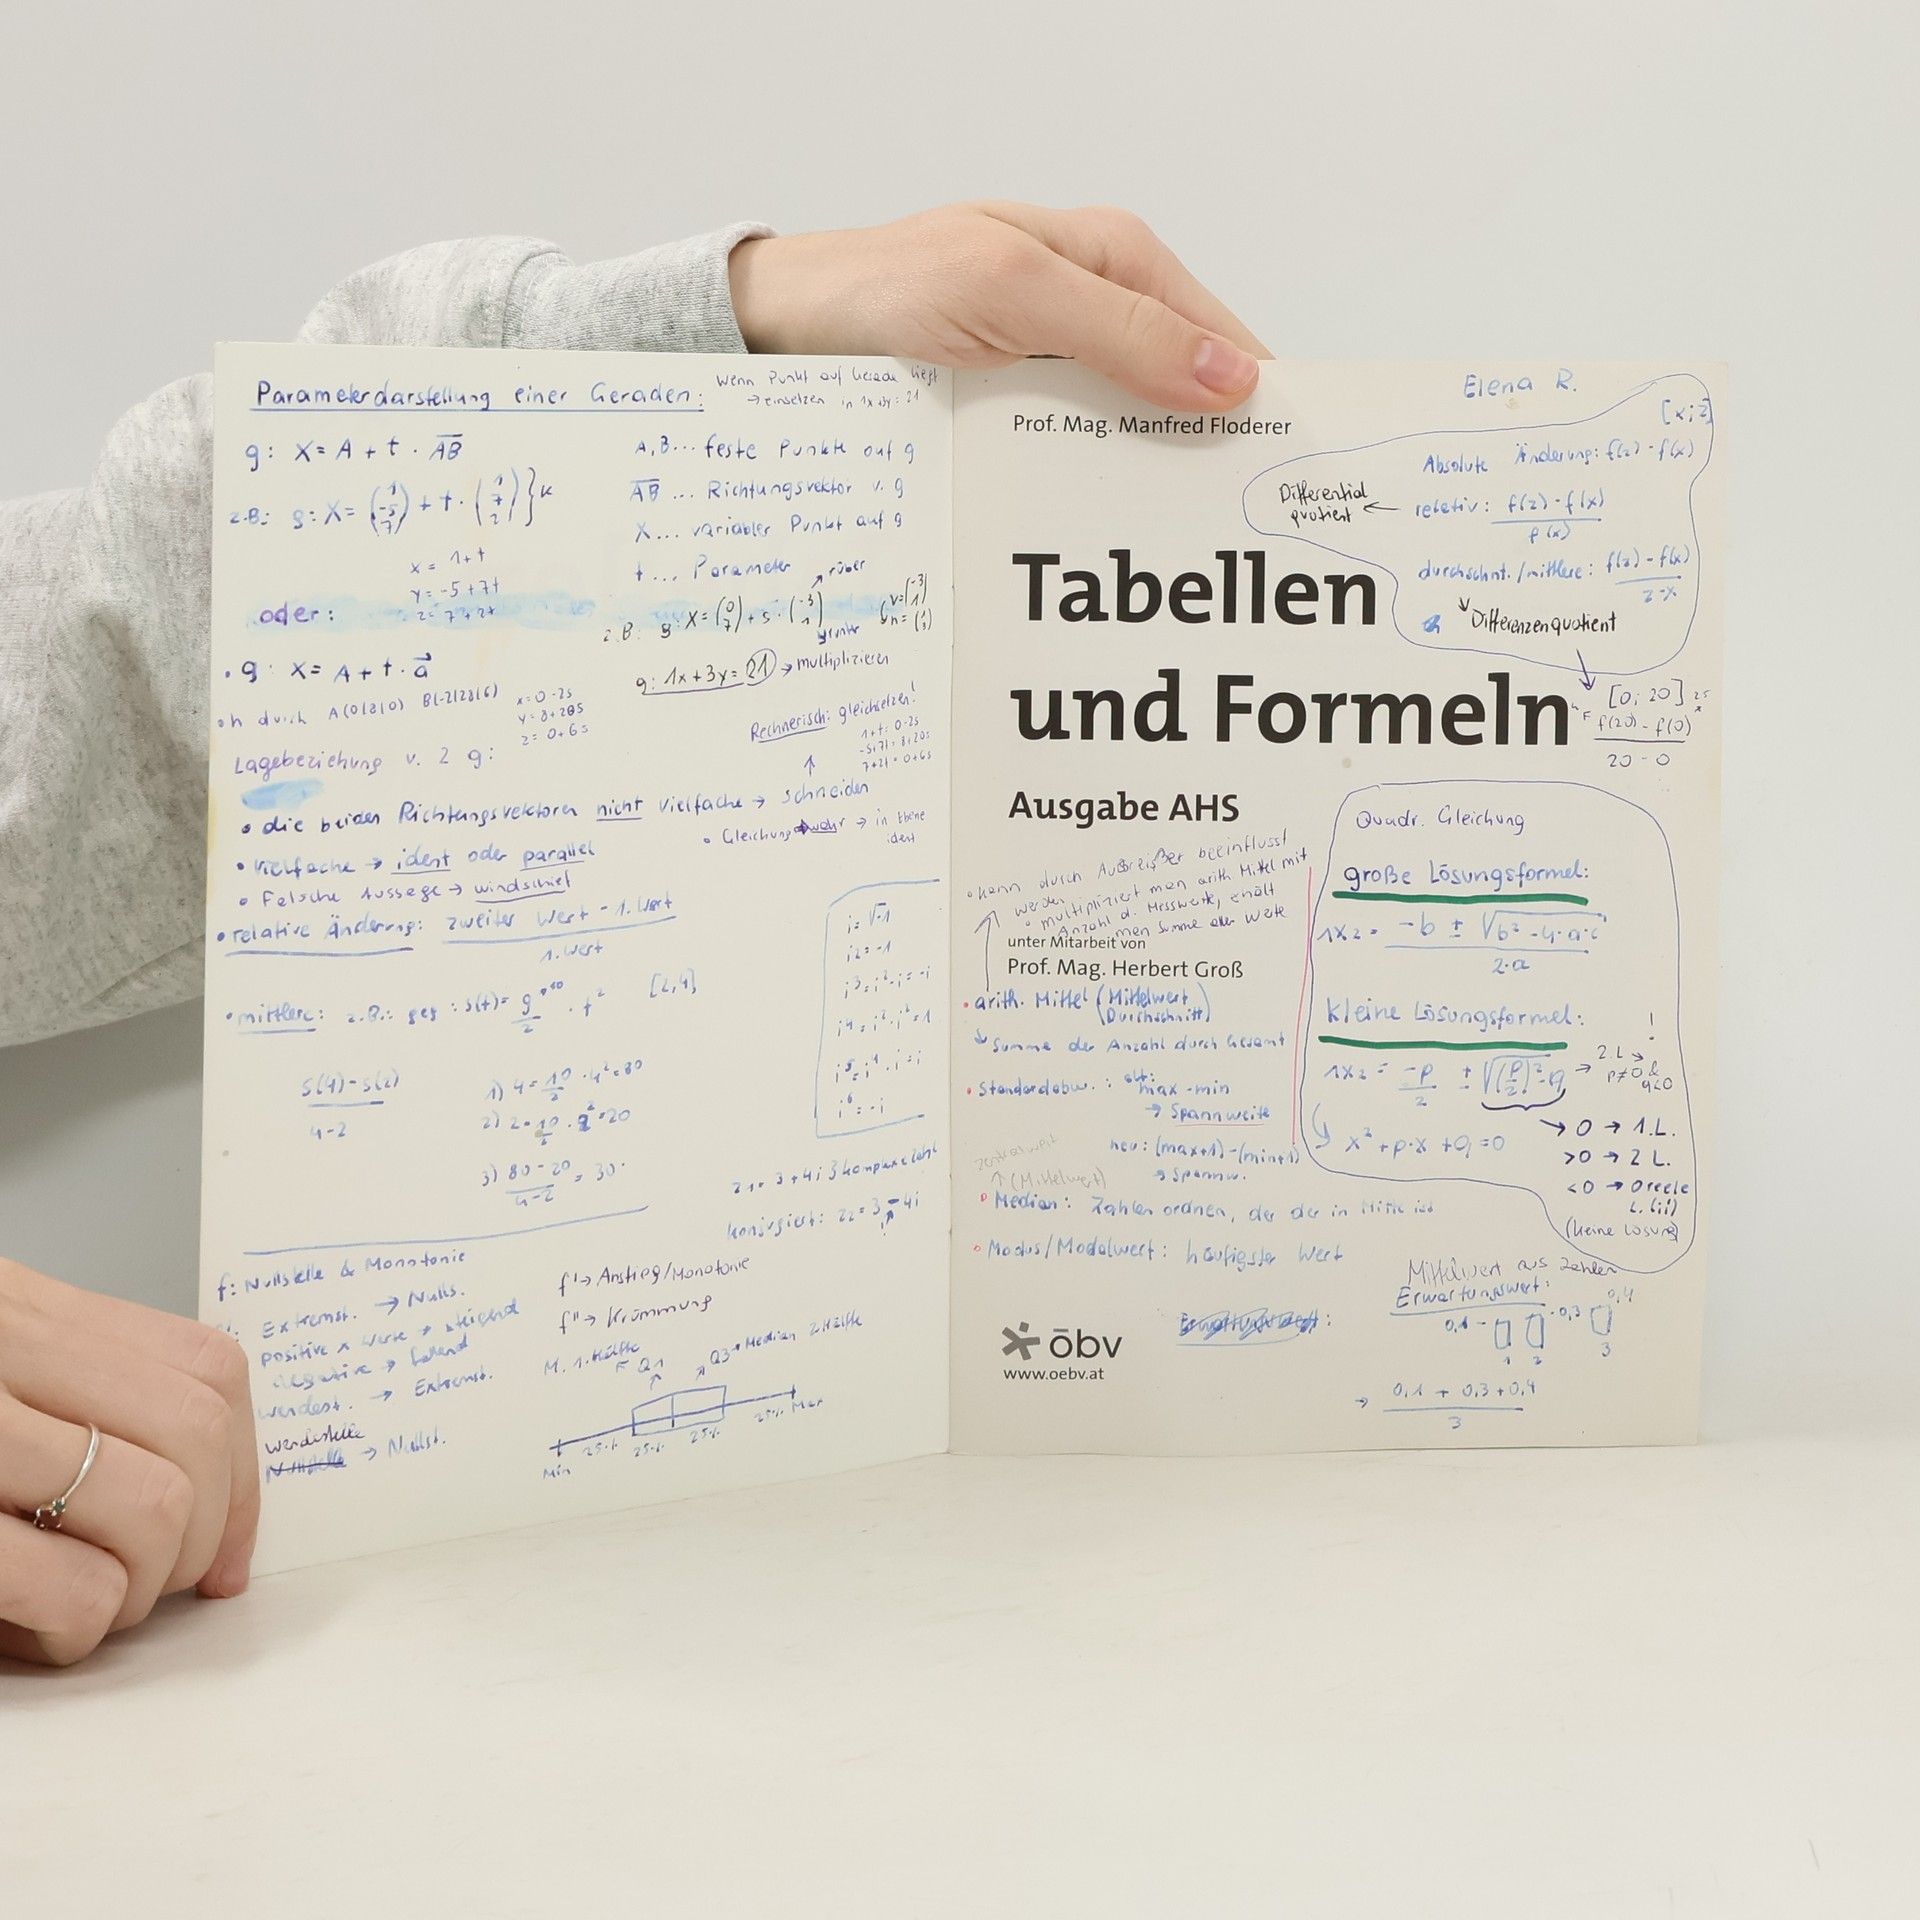 Parameterdarstellung einer Geraden:
Wenn Punkt auf Gerade liegt
→ einsetzen in 1x+3y=21
g: X = A + t · AB
A, B... feste Punkte auf g
AB ... Richtungsvektor v. g
z.B: g: X = (1 -5 7) + t · (1 7 2)
X... variabler Punkt auf g
t ... Parameter
x = 1+t
y = -5+7t
z = 7+2t
oder:
z.B: g: X = (0 7) + s · (-3 1)
↗ rüber
v = (-3 1)
n = (1 3)
g: 1x+3y = 21 → multiplizieren
• g: X = A + t · a
• h durch A(0|8|0) B(-2|28|6)
x=0-2s
y=8+20s
z=0+6s
Rechnerisch: gleichsetzen!
1+t=0-2s
-5+7t=8+20s
7+2t=0+6s
Lagebeziehung v. 2 g:
• die beiden Richtungsvektoren nicht vielfache → schneiden
• Gleichung wahr → in Ebene
ident
• vielfache → ident oder parallel
• Falsche Aussage → windschief
• relative Änderung: zweiter Wert - 1. Wert
1. Wert
• mittlere: z.B.: geg: s(t) = g/2 · t² [2,4]
s(4)-s(2)
4-2
1) 4 = 10/2 · 4² = 80
2) 2 = 10/2 · 2² = 20
3) 80-20 / 4-2 = 30
i = √-1
i2 = -1
i³ = i² · i = -i
i4 = i² · i² = 1
i5 = i4 · i = i
i6 = -i
z1 = 3 + 4i } komplexe Zahl
konjugiert: z2 = 3 - 4i
f: Nullstelle & Monotonie
Extremst. → Nulls.
positive x Werte → steigend
negative → fallend
Wendest. → Extremst.
Wendestelle → Nullst.
f' → Anstieg/Monotonie
f'' → Krümmung
M. 1. Hälfte
Q1
Q3 → Median 2. Hälfte
Min 25% 25% 25% 25% Max
Elena R.
Prof. Mag. Manfred Floderer
[x; z]
Absolute Änderung: f(z) - f(x)
Differential
quotient ← relativ: f(z) - f(x)
f(x)
durchschnt. /mittlere: f(z) - f(x)
z-x
Differenzenquotient
Tabellen
und Formeln
[0; 20]
f(20) - f(0)
20 - 0
Ausgabe AHS
• kann durch Ausreißer beeinflusst
werden
• multipliziert man arith Mittel mit
Anzahl d. Messwerte, erhält
man Summe aller Werte
unter Mitarbeit von
Prof. Mag. Herbert Groß
• arith. Mittel (Mittelwert
Durchschnitt)
↳ Summe der Anzahl durch Gesamt
• Standardabw. : alt: max - min
→ Spannweite
neu: (max+1) - (min+1)
→ Spannw.
Zentralwert
↑ (Mittelwert)
• Median: Zahlen ordnen, der der in Mitte ist
• Modus/Modalwert: häufigster Wert
Quadr. Gleichung
große Lösungsformel:
1x2 = -b ± √b² - 4·a·c
2·a
kleine Lösungsformel:
1x2 = -p/2 ± √(p/2)² - q
!
→ 2.L →
p≠0 &
q<0
x² + p·x + q = 0
→ 0 → 1.L.
>0 → 2 L.
<0 → 0 reele
L. (ii)
(keine Lösung)
Mittelwert aus Zahlen
Erwartungswert:
0,1 0,3 0,4
1 2 3
→ 0,1 + 0,3 + 0,4
3
öbv
www.oebv.at